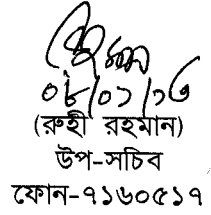 ০৮/০১/১৩
(রুহী রহমান)
উপ-সচিব
ফোন-৭১৬০৫১৭